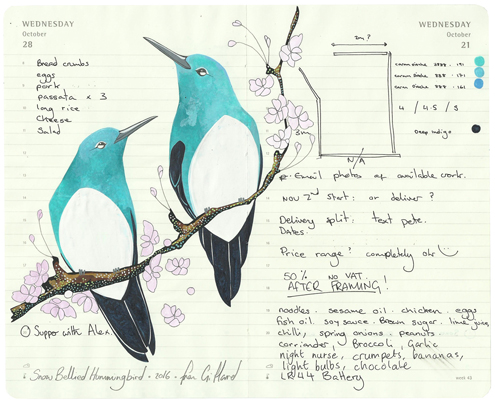 WEDNESDAY
October
28
Bread crumbs
eggs
pork
passata × 3
long rice
Cheese
Salad
① Supper with Alex.
Snow Bellied Hummingbird - 2016 -
WEDNESDAY
October
21
2m ?
3m
N/A
4 / 4.5 / 3
Deep indigo
Email photos of available work.
NOV 2nd start : or deliver ?
Delivery split : text pete.
Dates.
Price range? completely ok
50% no VAT.
AFTER FRAMING!
noodles . sesame oil . chicken . eggs
fish oil . soy sauce . Brown sugar . lime juice,
chilli, spring onions . peanuts
corriander, Broccoli, Garlic
night nurse, crumpets, bananas,
light bulbs, chocolate
LR44 Battery
week 43